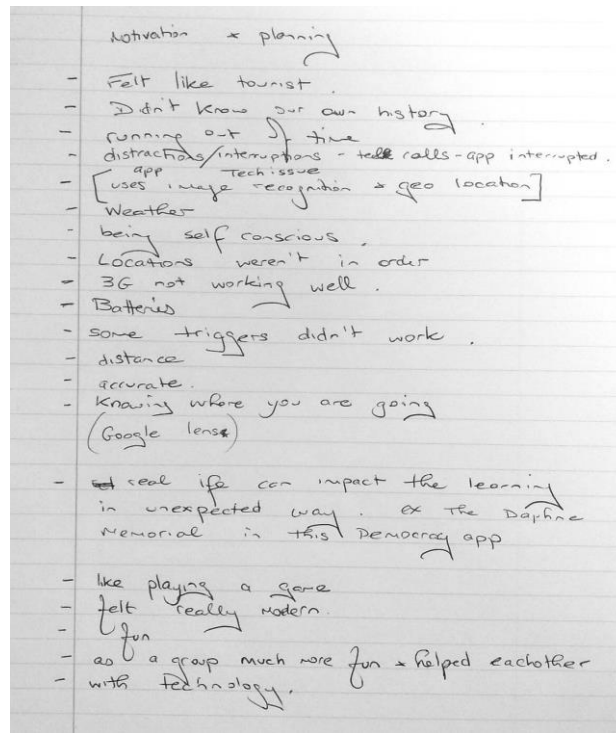 Motivation & planning
- Felt like tourist.
- Didn't know our own history.
- running out of time
- distractions/interruptions - calls - app interrupted.
app Tech issue
- [uses image recognition & geo location]
- Weather
- being self conscious.
- Locations weren't in order
- 3G not working well.
- Batteries
- some triggers didn't work.
- distance
- accurate.
- Knowing where you are going
(Google lens)
- real ife can impact the learning
in unexpected way. ex The Daphne
Memorial in this Democracy app
- like playing a game
- felt really modern.
- fun
- as a group much more fun & helped eachother
- with technology.